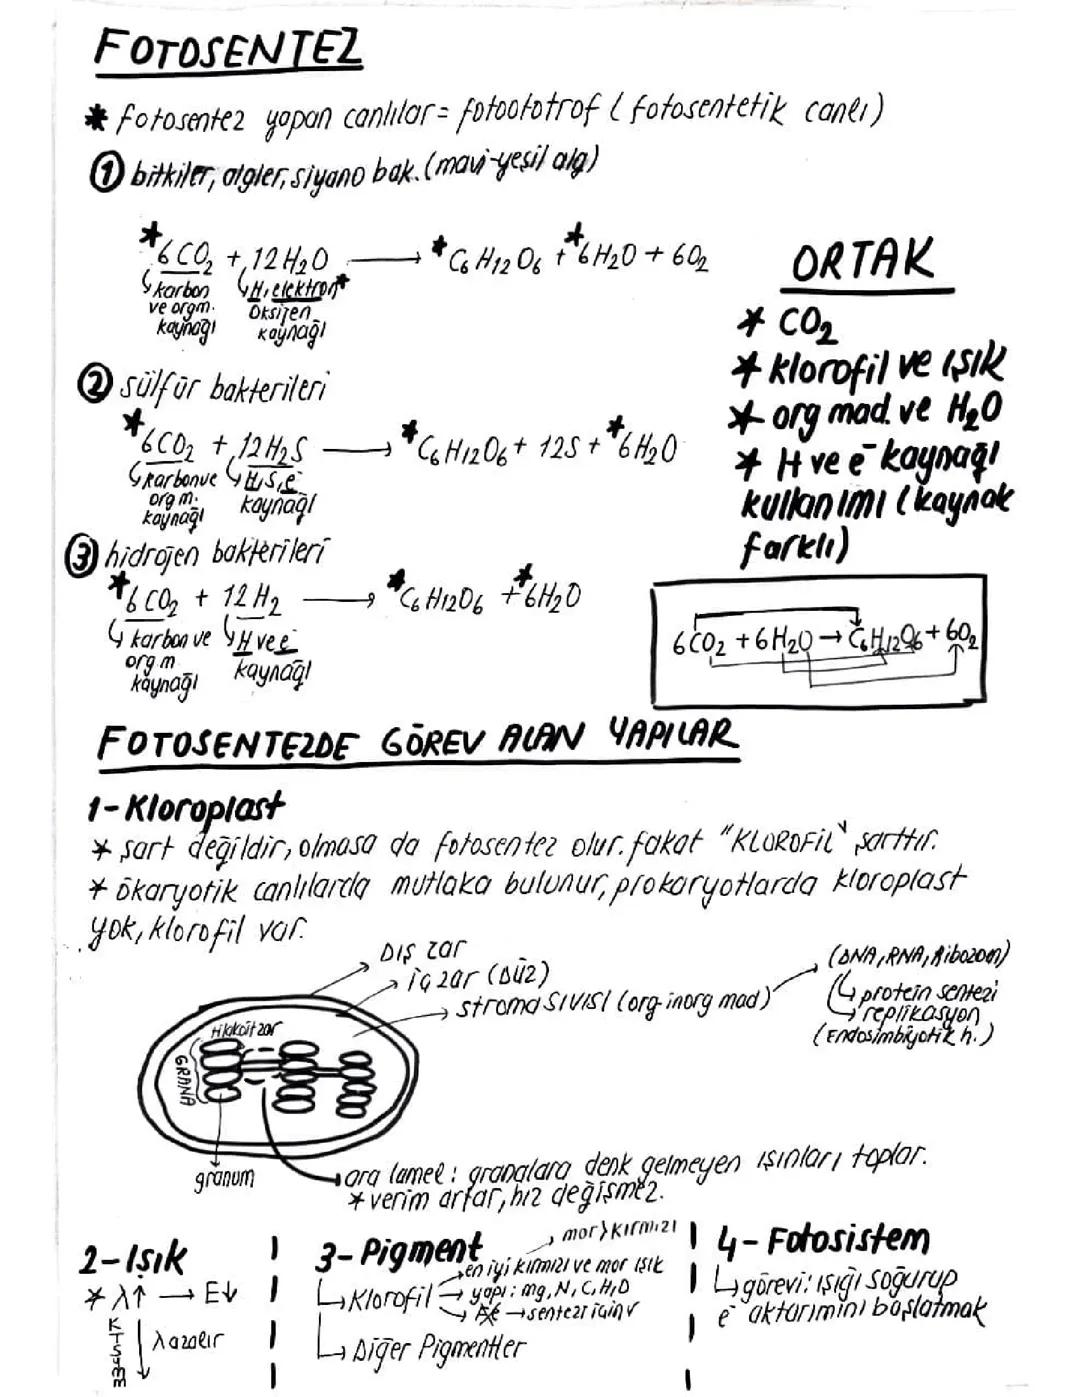 FOTOSENTEZ
* fotosentez yapan canlılar = fotoototrof ( fotosentetik canlı)
① bitkiler, algler, siyano bak. (mavi-yeşil alg)
*6CO₂ + 12H₂O → *C₆H₁₂O₆ + *6H₂O + 6O₂
karbon ve orgm. kaynağı
H, elektron* oksijen kaynağı
② sülfür bakterileri
*6CO₂ + 12H₂S → *C₆H₁₂O₆ + 12S + *6H₂O
karbon ve orgm. kaynağı
H, S, e⁻ kaynağı
③ hidrojen bakterileri
*6CO₂ + 12H₂ → *C₆H₁₂O₆ + *6H₂O
karbon ve orgm kaynağı
H ve e⁻ kaynağı
ORTAK
* CO₂
* klorofil ve ışık
* org mad. ve H₂O
* H ve e⁻ kaynağı
kullanımı (kaynak
farklı)
6CO₂ + 6H₂O → C₆H₁₂O₆ + 6O₂
FOTOSENTEZDE GÖREV ALAN YAPILAR
1- Kloroplast
* şart değildir, olmasa da fotosentez olur. fakat "KLOROFİL" şarttır.
* ökaryotik canlılarda mutlaka bulunur, prokaryotlarda kloroplast
yok, klorofil var.
DIŞ zar
iç zar (DÜZ)
stroma SIVISI (org-inorg mad)
(DNA, RNA, Ribozom)
protein sentezi
replikasyon
(Endosimbiyotik h.)
Tilakoit zar
GRANA
granum
ara lamel : granalara denk gelmeyen ışınları toplar.
* verim artar, hız değişmez.
2- Işık
* λ↑ → E↓
K T S Y M M
λ azalır
3- Pigment
mor > kırmızı
en iyi kırmızı ve mor ışık
Klorofil → yapı : mg, N, C, H, O
Fe → sentezi için
Diğer Pigmentler
4- Fotosistem
görevi: ışığı soğurup
e⁻ aktarımını başlatmak